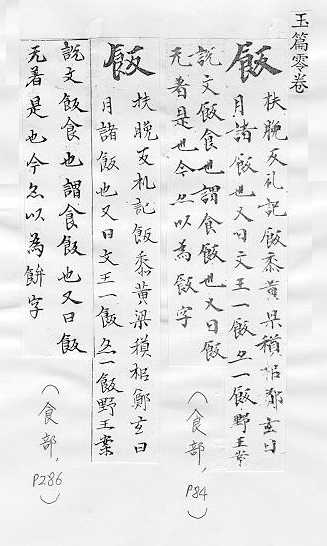 玉篇零卷
飯
扶晚反礼記飯黍黃梁稷稻鄭玄曰
目諸飯也又曰文王一飯亦一飯野王案
說文飯食也謂食飯也又曰飯
无著是也今亦以為飯字
(食部, P84)
飯
扶晚反札記飯黍黃梁稷稻鄭玄曰
月諸飯也又曰文王一飯亦一飯野王案
說文飯食也謂食飯也又曰飯
无著是也今亦以為餅字
(食部, P286)